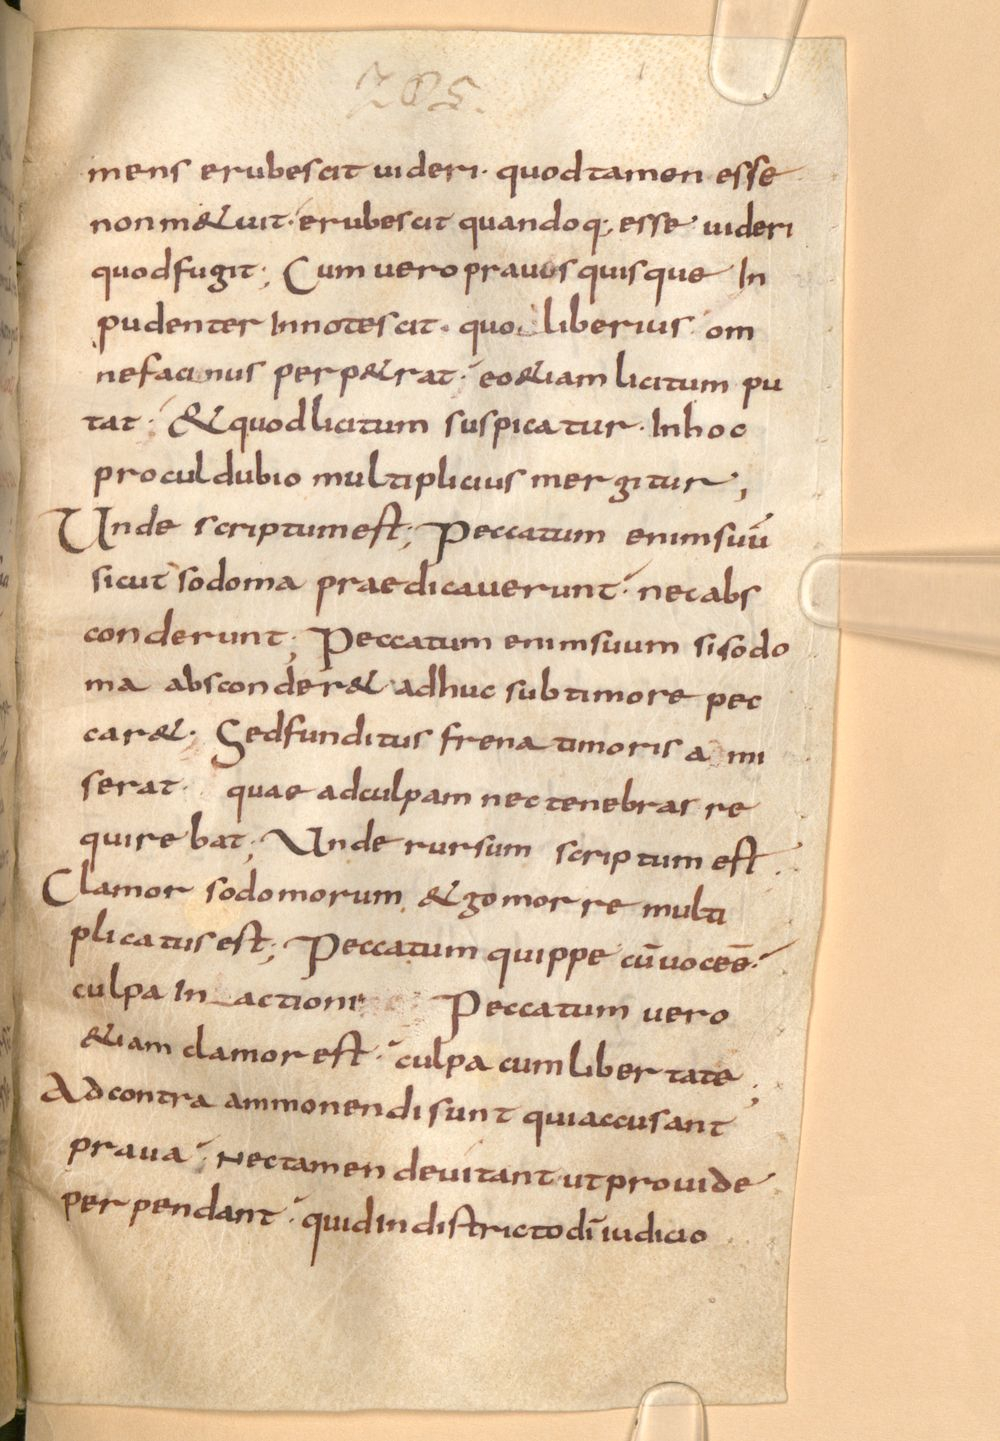 205.
mens erubescit uideri· quod tamen esse
non m&uit· erubescit quandoq; esse uideri
quod fugit; Cum uero prauus quisque In
pudenter Innotescit· quo liberius om
ne facinus perp&rat· eo &iam licitum pu
tat· & quod licitum suspicatur· In hoc
procul dubio multiplicius mergitur;
Unde scriptum est; Peccatum enim suū
sicut sodoma praedicauerunt· nec abs
conderunt; Peccatum enim suum si sodo
ma absconder& adhuc sub timore pec
car&· Sed funditus frena timoris a mi
serat· quae ad culpam nec tenebras re
quirebat; Unde rursum scriptum est·
Clamor sodomorum & gomorre multi
plicatus est; Peccatum quippe cū uoce ē·
culpa In actione Peccatum uero
&iam clamor est· culpa cum libertate;
Ad contra ammonendi sunt qui accusant
praua· Nec tamen deuitant ut prouide
perpendant· quid In districto dī iudicio